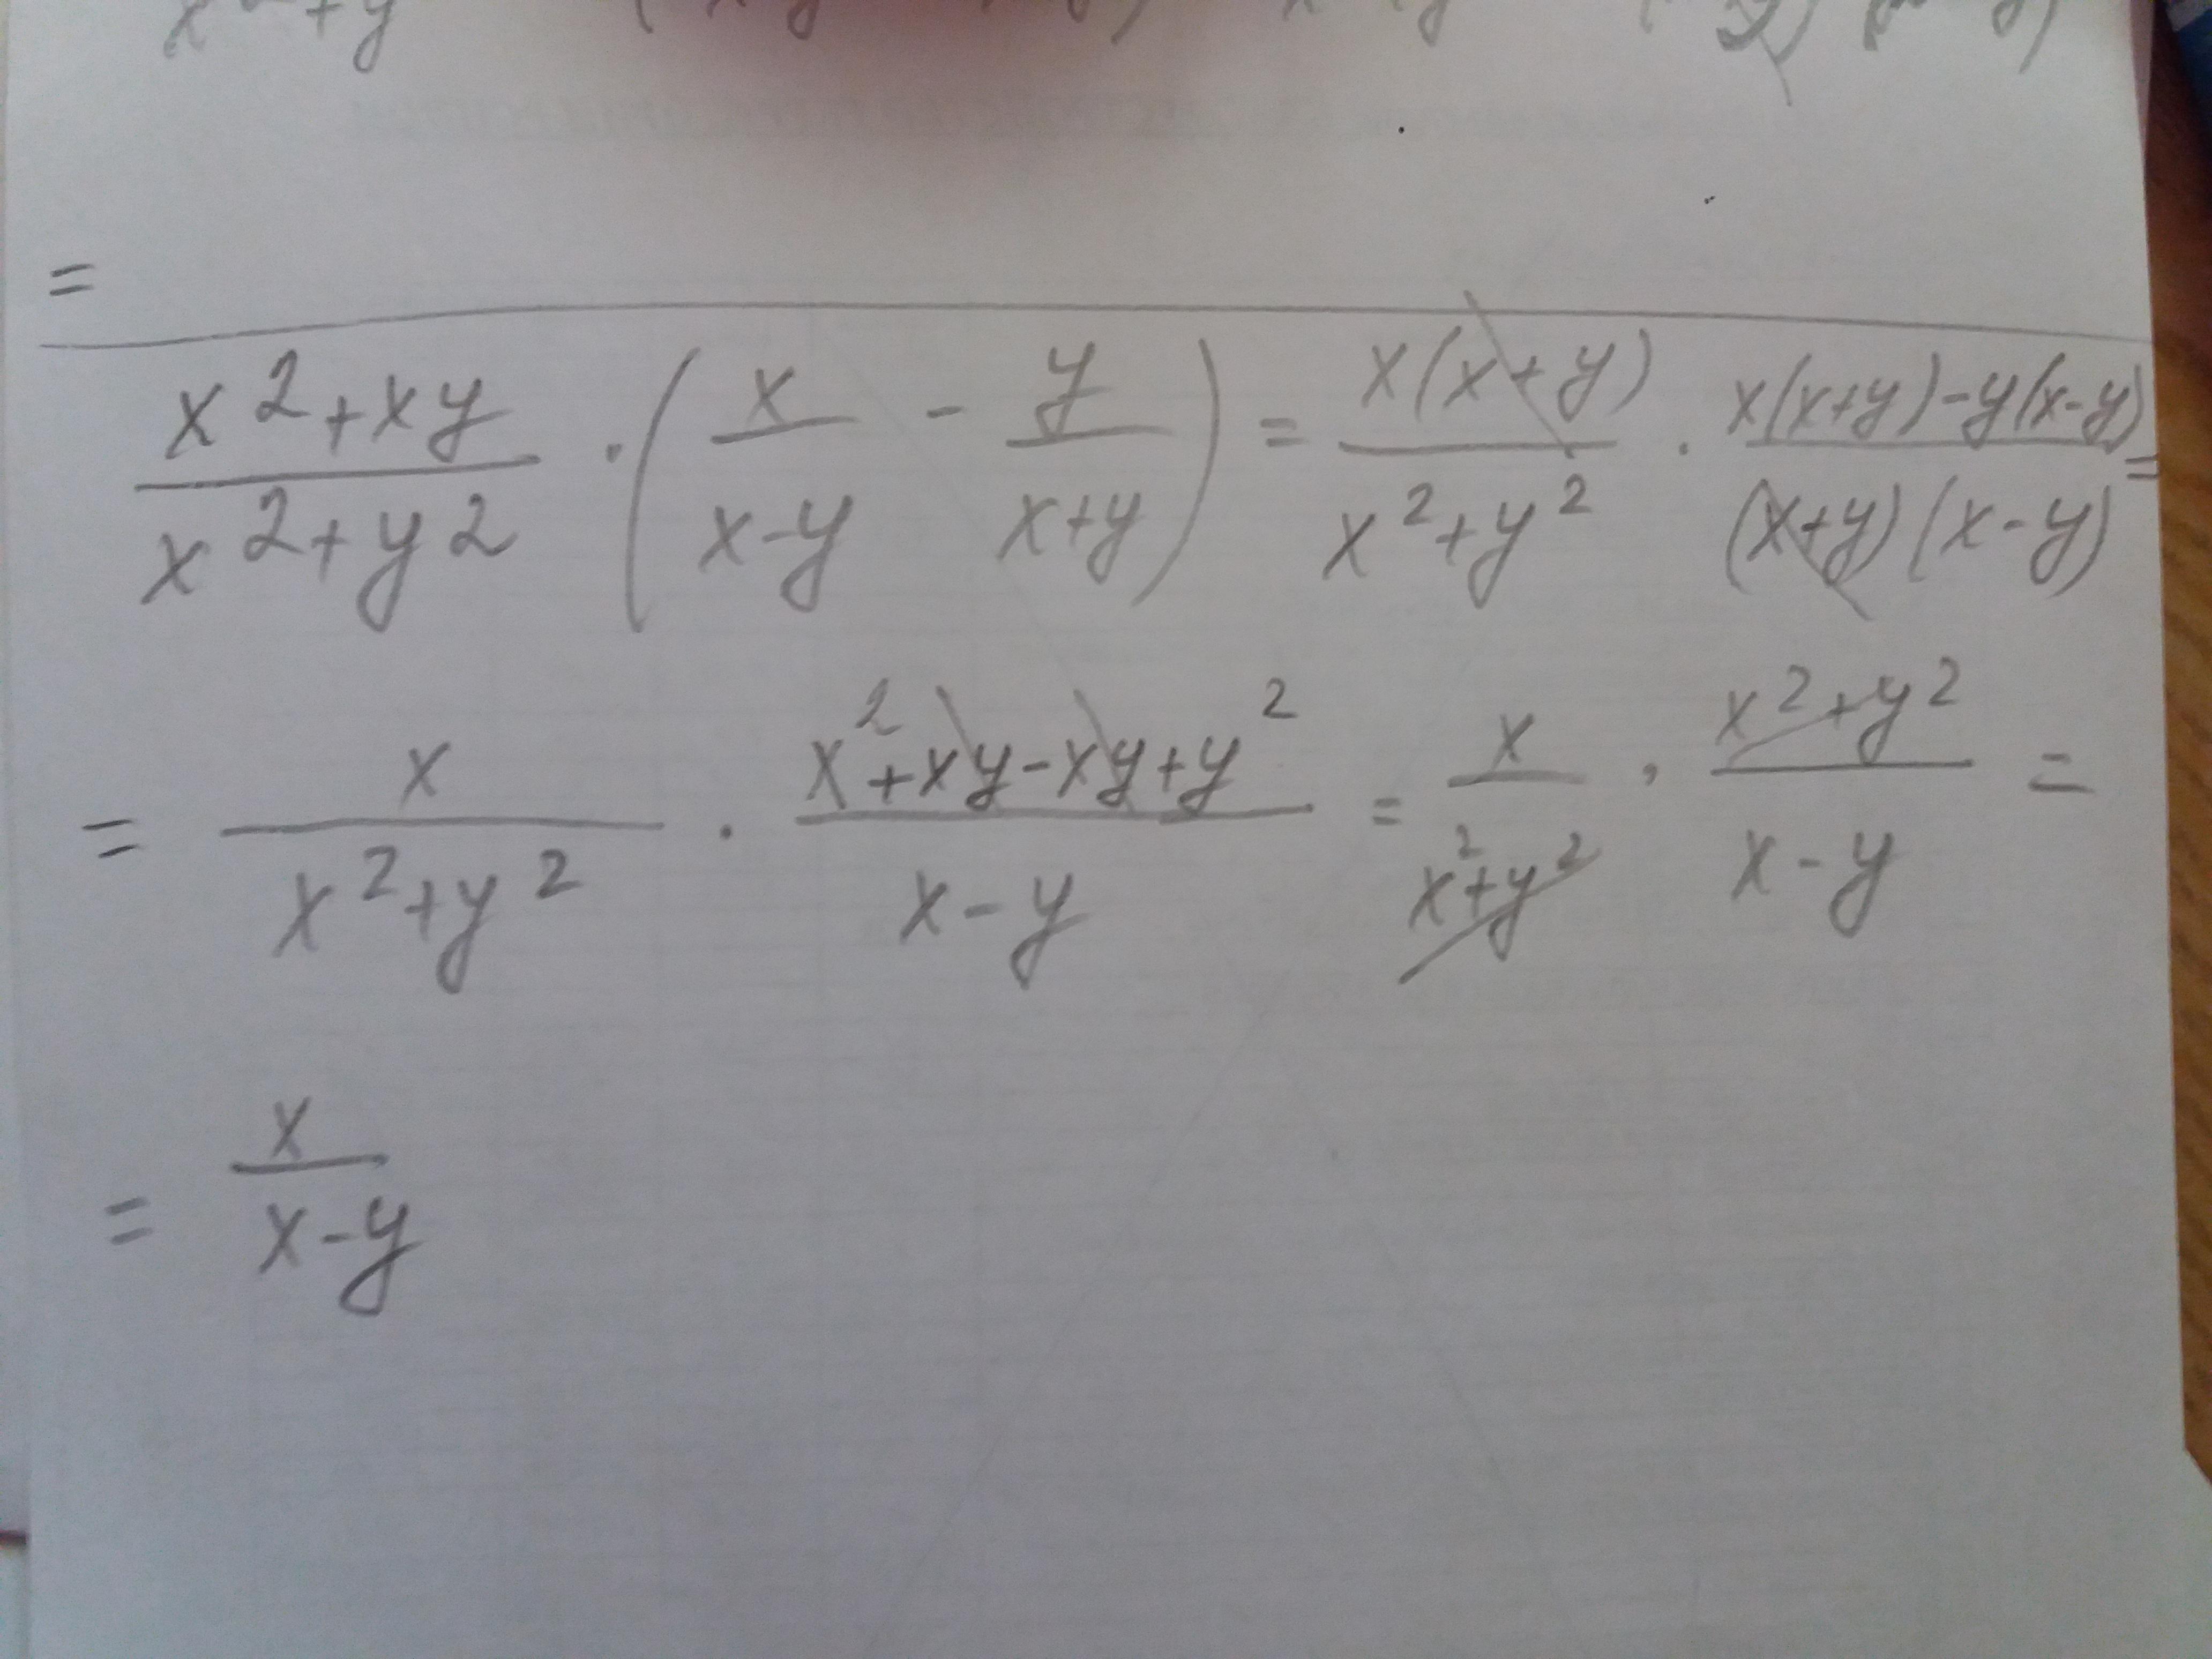 =
x²+xy/x²+y² · (x/x-y - y/x+y) = x(x+y)/x²+y² · x(x+y)-y(x-y)/(x+y)(x-y) =
= x/x²+y² · x²+xy-xy+y²/x-y = x/x²+y² · x²+y²/x-y =
= x/x-y